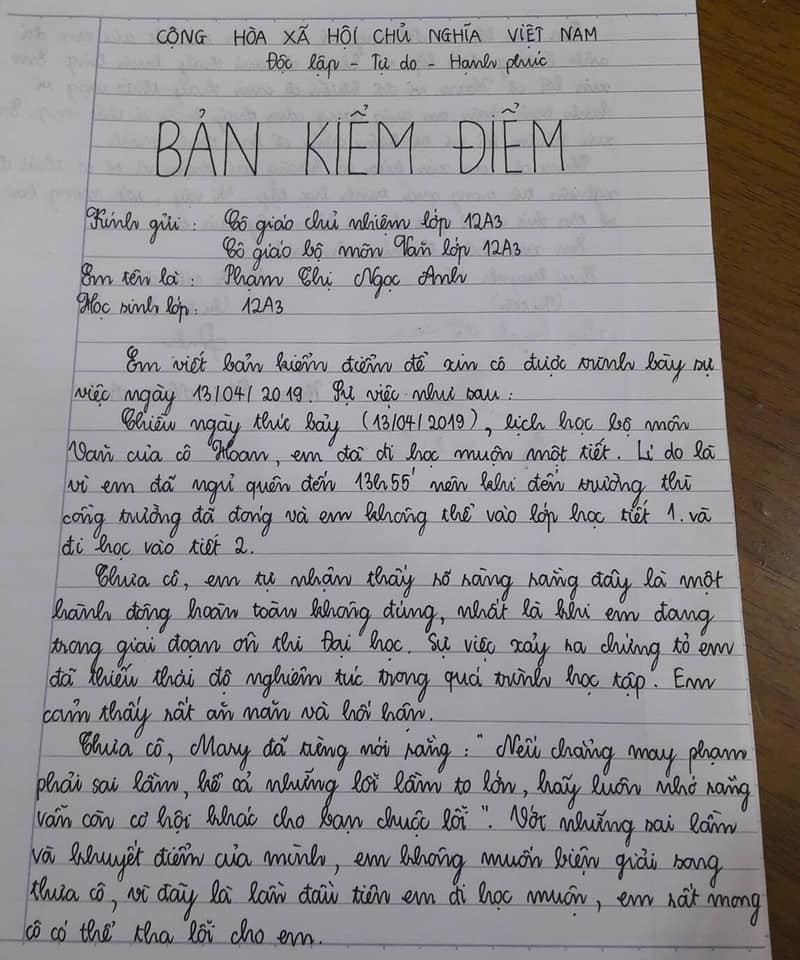 CỘNG HÒA XÃ HỘI CHỦ NGHĨA VIỆT NAM
Độc lập - Tự do - Hạnh phúc
BẢN KIỂM ĐIỂM
Kính gửi : Cô giáo chủ nhiệm lớp 12A3
Cô giáo bộ môn Văn lớp 12A3
Em tên là : Phạm Thị Ngọc Anh
Học sinh lớp : 12A3
Em viết bản kiểm điểm để xin cô được trình bày sự
việc ngày 13/04/2019. Sự việc như sau :
Chiều ngày thức bảy (13/04/2019), lịch học bộ môn
Văn của cô Hoan, em đã đi học muộn một tiết. Lí do là
vì em đã ngủ quên đến 13h55' nên khi đến trường thì
cổng trường đã đóng và em không thể vào lớp học tiết 1. và
đi học vào tiết 2.
Thưa cô, em tự nhận thấy rõ ràng rằng đây là một
hành động hoàn toàn không đúng, nhất là khi em đang
trong giai đoạn ôn thi Đại học. Sự việc xảy ra chứng tỏ em
đã thiếu thái độ nghiêm túc trong quá trình học tập. Em
cảm thấy rất ăn năn và hối hận.
Thưa cô, Mary đã từng nói rằng : " Nếu chẳng may phạm
phải sai lầm, kể cả những lỗi lầm to lớn, hãy luôn nhớ rằng
vẫn còn cơ hội khác cho bạn chuộc lỗi ". Với những sai lầm
và khuyết điểm của mình, em không muốn biện giải song
thưa cô, vì đây là lần đầu tiên em đi học muộn, em rất mong
cô có thể tha lỗi cho em.